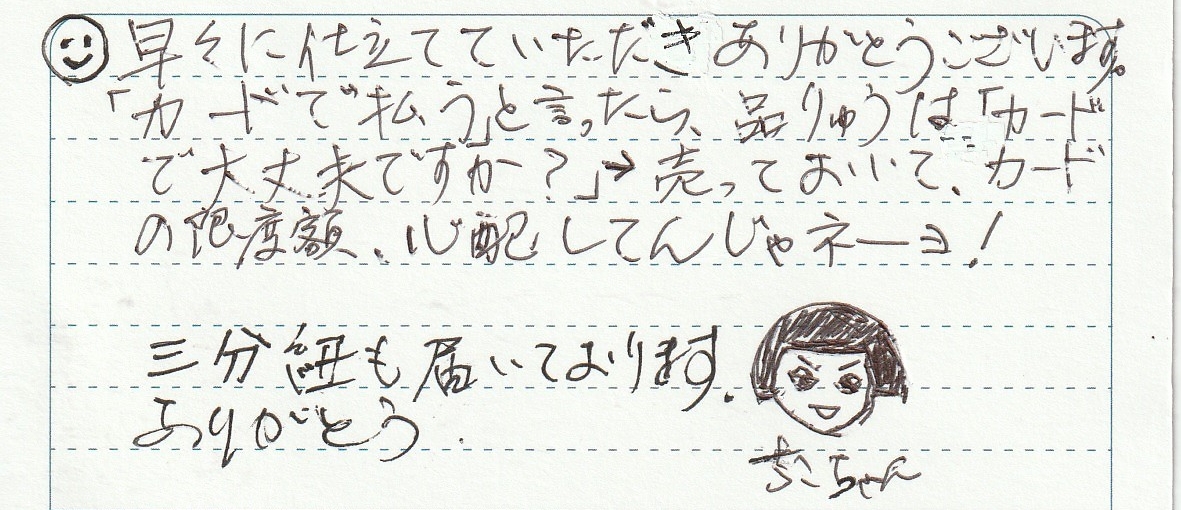 早々に仕立てていただきありがとうございます。
「カードで払う」と言ったら、品りゅうは「カード
で大丈夫ですか?」→売っておいて、カード
の限度額、心配してんじゃネーヨ!
三分紐も届いております.
ありがとう.
ちこちゃん